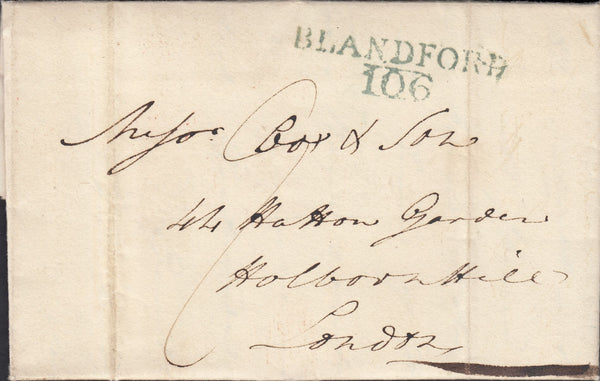 BLANDFORD
106
Messrs. Cox & Son
44 Hatton Garden
Holborn Hill
London